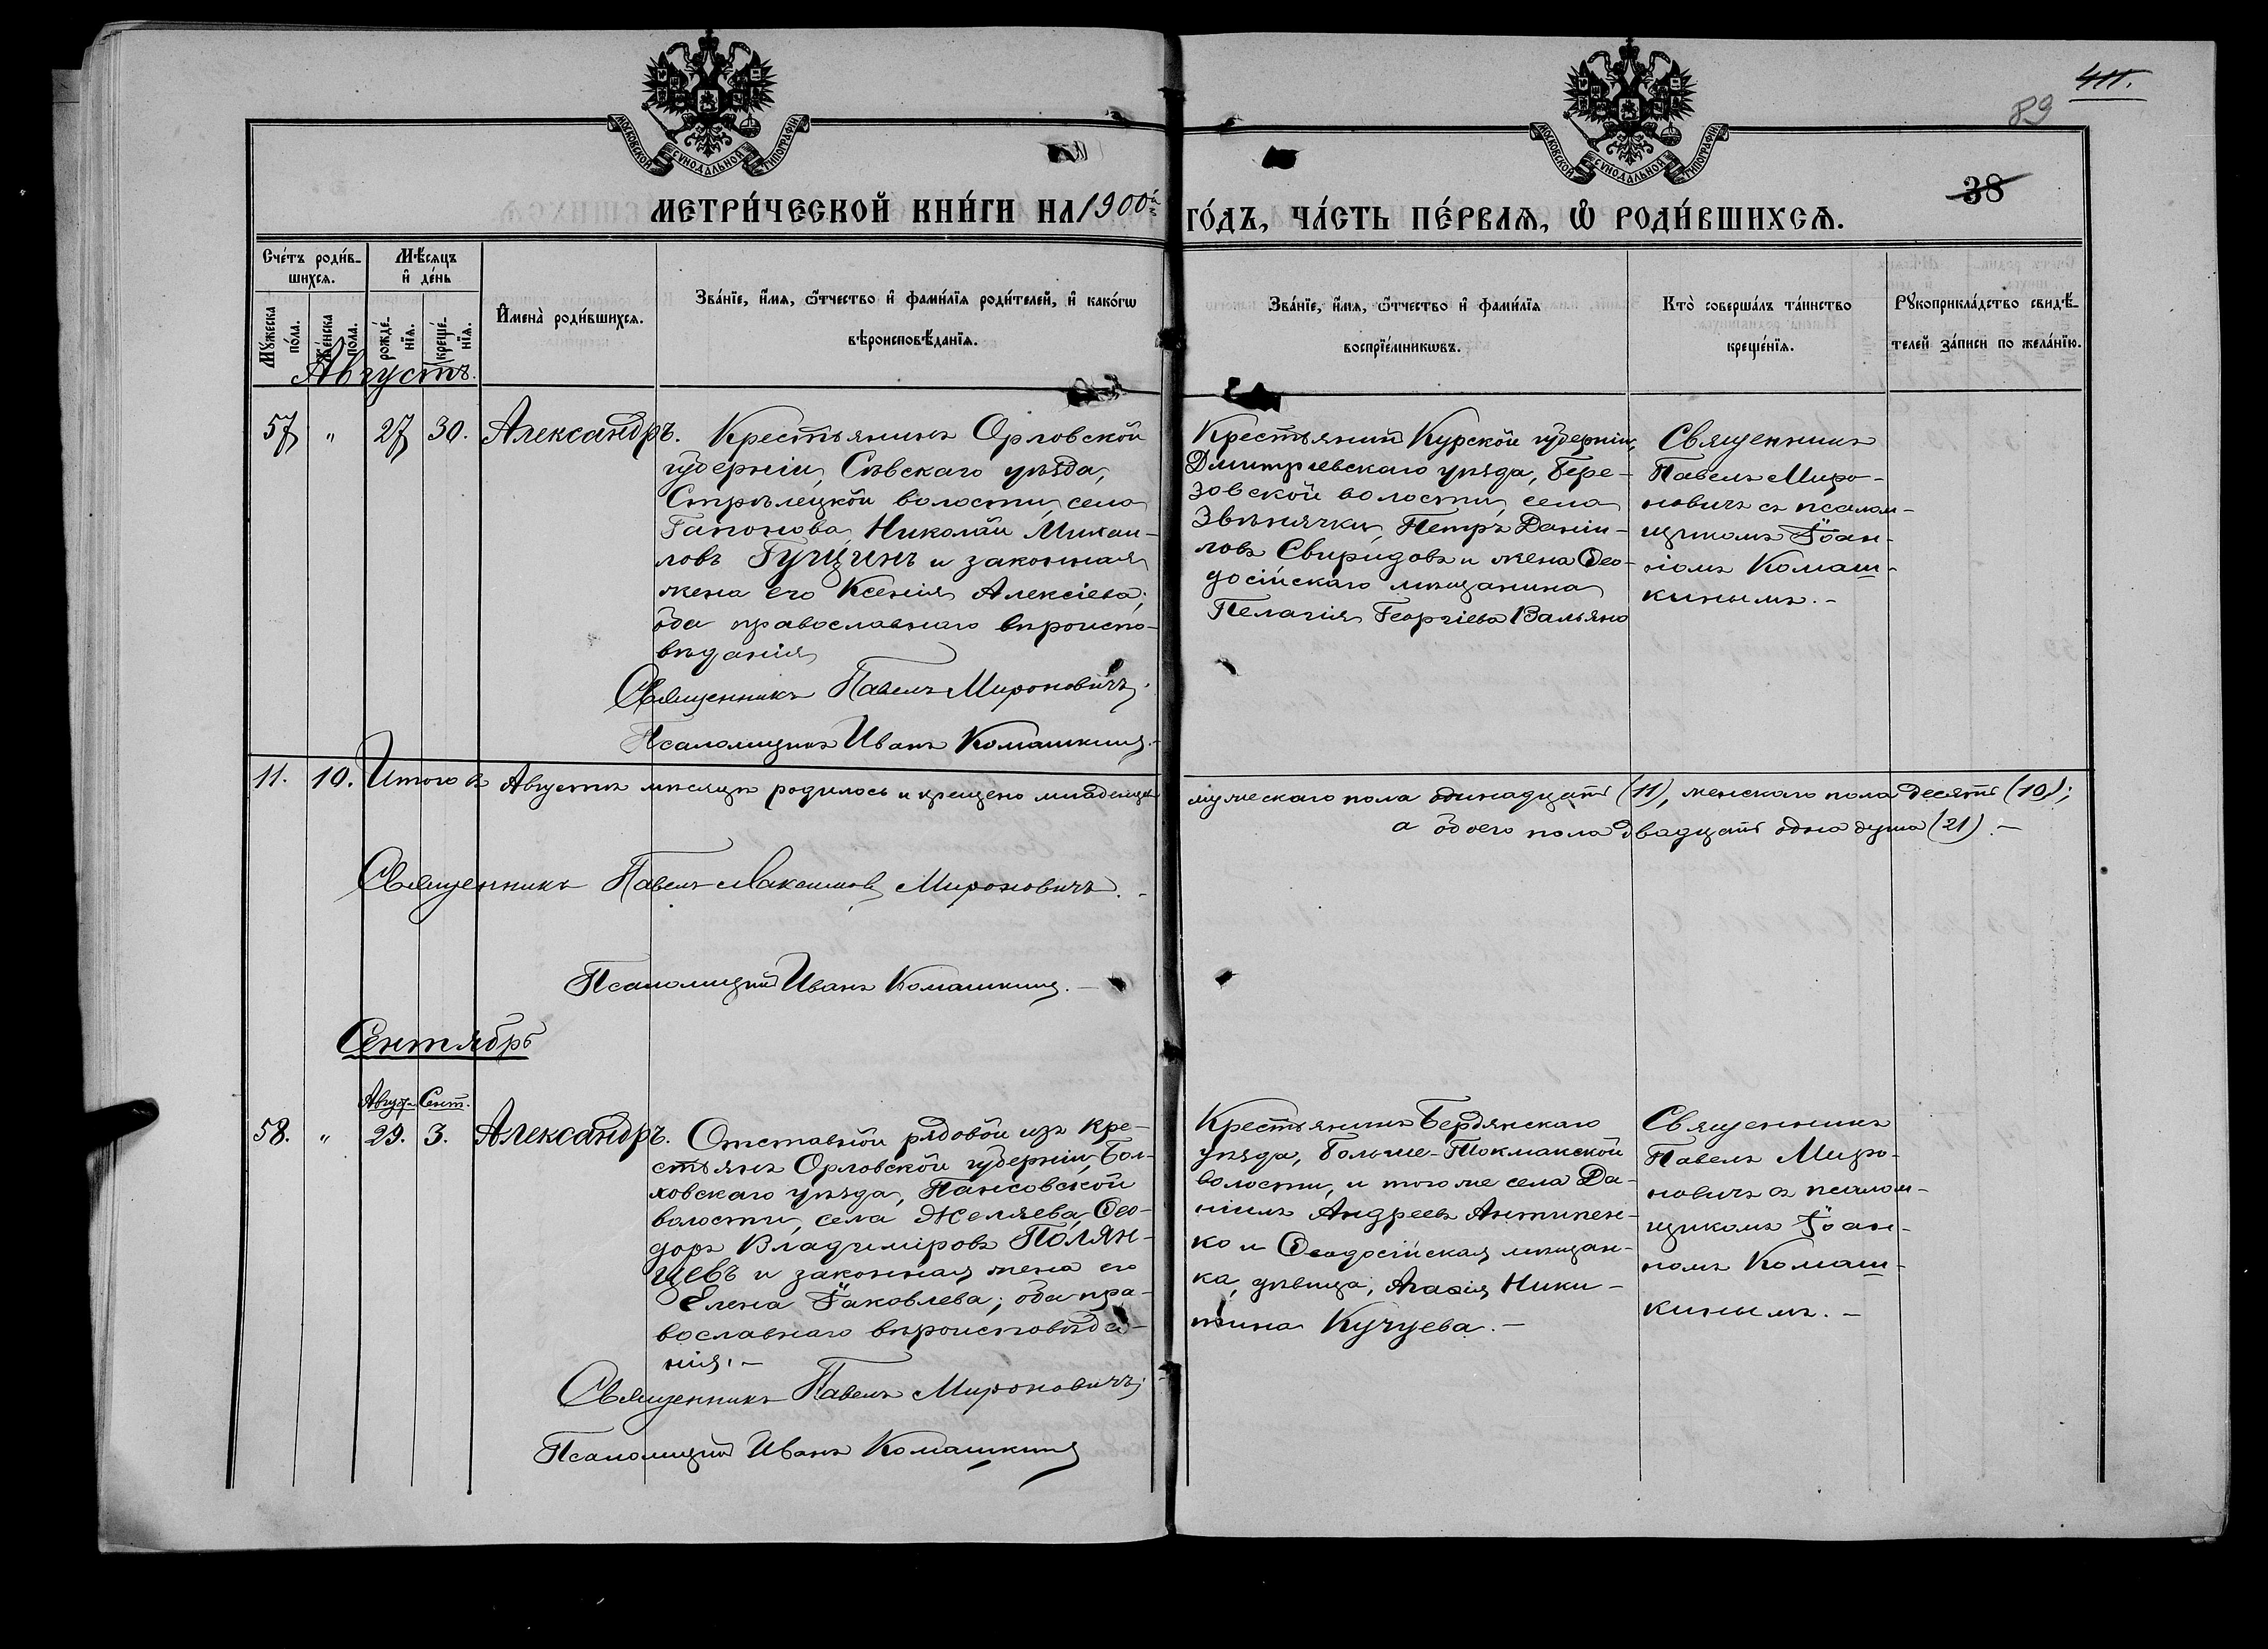 МОСКОВСКОЙ СУНОДАЛЬНОЙ ТИПОГРАФІИ
МОСКОВСКОЙ СУНОДАЛЬНОЙ ТИПОГРАФІИ
411.
89
38
МЕТРИ́ЧЕСКОЙ КНИ́ГИ НА 1900й
ГО́ДЪ, ЧА́СТЬ ПЕ́РВАѦ, Ѡ҆ РОДИ́ВШИХСѦ.
Сче́тъ роди́в-
шихсѧ.
Мꙋ́жеска по́ла.
Же́нска по́ла.
Мѣ́сѧцъ
и҆ де́нь
рожде́-
нїѧ.
креще́-
нїѧ.
И҆мена̀ роди́вшихсѧ.
Зва́нїе, и҆́мѧ, ѻ҆́тчество и҆ фами́лїѧ роди́телей, и҆ како́гѡ
вѣроисповѣ́данїѧ.
Зва́нїе, и҆́мѧ, ѻ҆́тчество и҆ фами́лїѧ
воспрїе́мникѡвъ.
Кто̀ соверша́лъ та́инство
креще́нїѧ.
Рꙋкоприкла́дство свидѣ́-
телей за́писи по жела́нїю.
Августъ.
57 " 27 30. Александръ.
Крестьянинъ Орловской
губерніи, Сѣвскаго уѣзда,
Стрѣлецкой волости, села
Гапонова, Николай Михаи-
ловъ Гущинъ и законная
жена его Ксенія Алексіева;
оба православнаго вѣроиспо-
вѣданія
Священникъ Павелъ Мироновичъ.
Псаломщикъ Иванъ Комашкинъ.-
Крестьянинъ Курской губерніи,
Дмитріевскаго уѣзда, Бере-
зовской волости, села
Звѣнячки, Петръ Даніи-
ловъ Свиридовъ и жена Ѳео-
досійскаго мѣщанина
Пелагія Георгіева Вальяно
Священникъ
Павелъ Миро-
новичъ съ псалом-
щикомъ Іоан-
номъ Комаш-
кинымъ.-
11. 10. Итого въ Августѣ мѣсяцѣ родилось и крещено младенцевъ
мужескаго пола одинадцать (11), женскаго пола десять (10);
а обоего пола двадцать одна душа (21).-
Священникъ Павелъ Максимовъ Мироновичъ.-
Псаломщикъ Иванъ Комашкинъ.-
Сентябрь
Авгус. Сент.
58. " 29. 3. Александръ.
Отставной рядовой изъ кре-
стьянъ Орловской губерніи, Бол-
ховскаго уѣзда, Пансовской
волости, села Желяева, Ѳео-
доръ Владиміровъ Полян-
цевъ и законная жена его
Елена Іаковлева; оба пра-
вославнаго вѣроисповѣда-
нія.-
Священникъ Павелъ Мироновичъ
Псаломщикъ Иванъ Комашкинъ
Крестьянинъ Бердянскаго
уѣзда, Больше-Токмакской
волости, и того же села Да-
ніилъ Андреевъ Антипен-
ко и Ѳеодосійская мѣщан-
ка, дѣвица, Агаѳія Ники-
тина Кучуева.-
Священникъ
Павелъ Миро-
новичъ съ псалом-
щикомъ Іоан-
номъ Комаш-
кинымъ.-